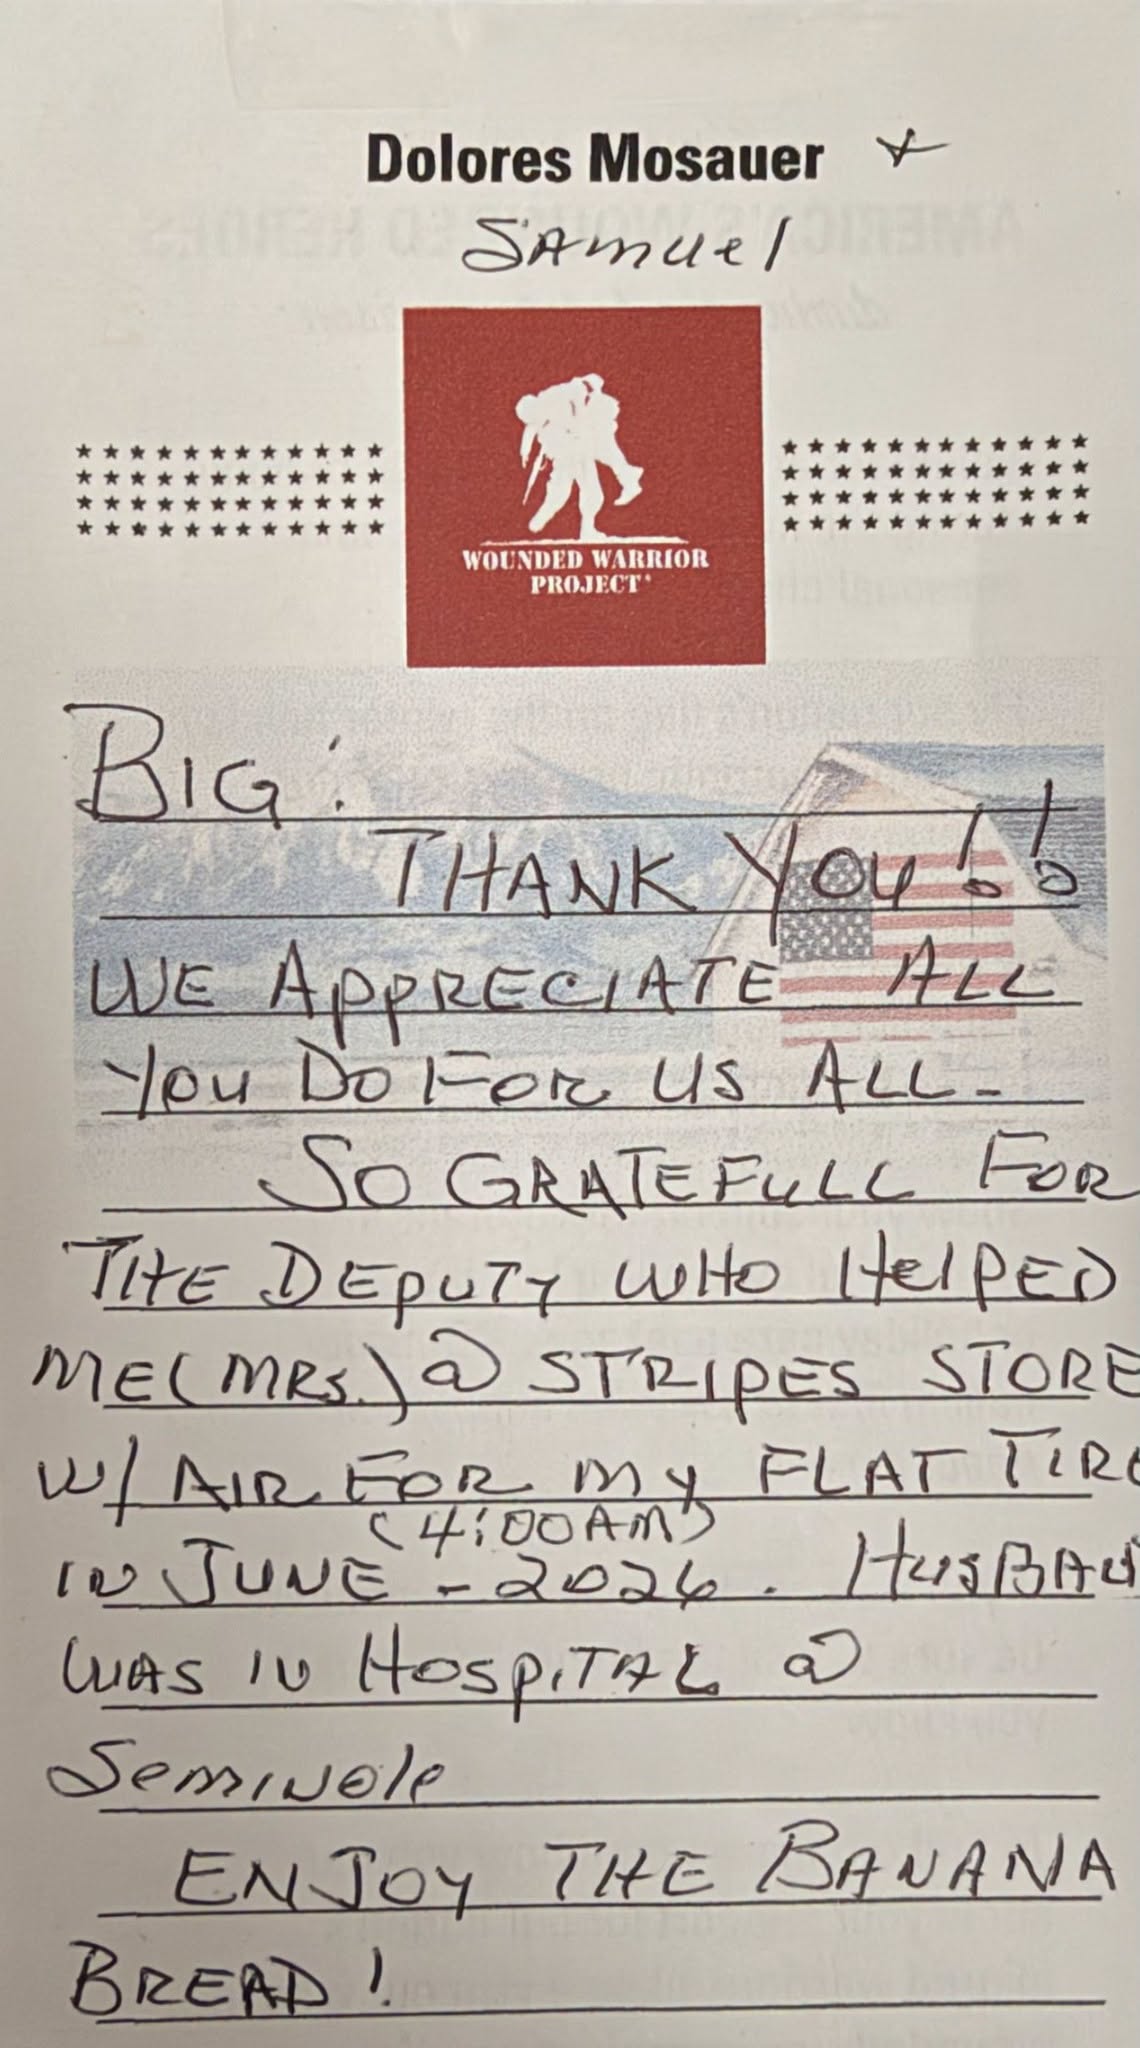 Dolores Mosauer +
Samuel
WOUNDED WARRIOR
PROJECT
BIG:
THANK YOU!!
WE APPRECIATE ALL
YOU DO FOR US ALL-
SO GRATEFULL FOR
THE DEPUTY WHO HELPED
ME (MRS.) @ STRIPES STORE
W/ AIR FOR MY FLAT TIRE
(4:00AM)
IN JUNE - 2026. HUSBAN
WAS IN HOSPITAL @
SEMINOLE
ENJOY THE BANANA
BREAD!